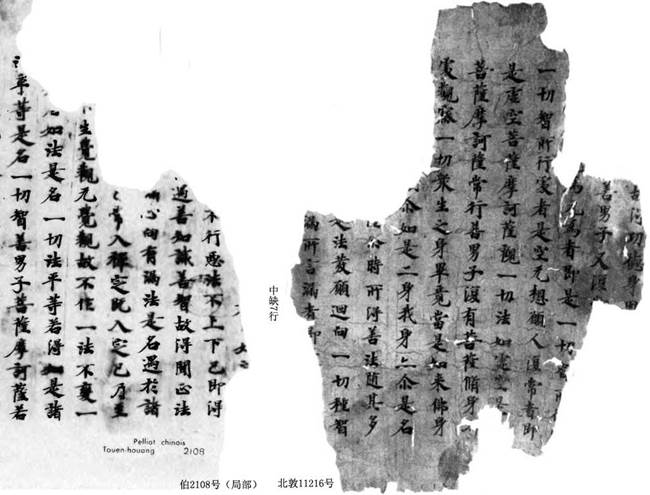 善男子又復
者即是一切
一切智所行處者是空无想願人復常者即
是虛空菩薩摩訶薩觀一切法如虛空是
菩薩摩訶薩常行善男子復有菩薩脩身
處觀察一切衆生之身畢竟當是如來佛身
尒如是二身我身亦尒是名
時所得善法隨其多
入法發願迴向一切種智
漏所言漏者即
中缺7行
不行惡法不上下已即得
過善知識善智故得聞正法
心向有漏法是名過於諸
常入禪定既入定已乃至
生覺觀无覺觀故不作一法不變一
如法是名一切法平等若得如是諸
平等是名一切智善男子菩薩摩訶薩若
Pelliot chinois
Touen-houang 2108
伯2108号（局部） 北敦11216号